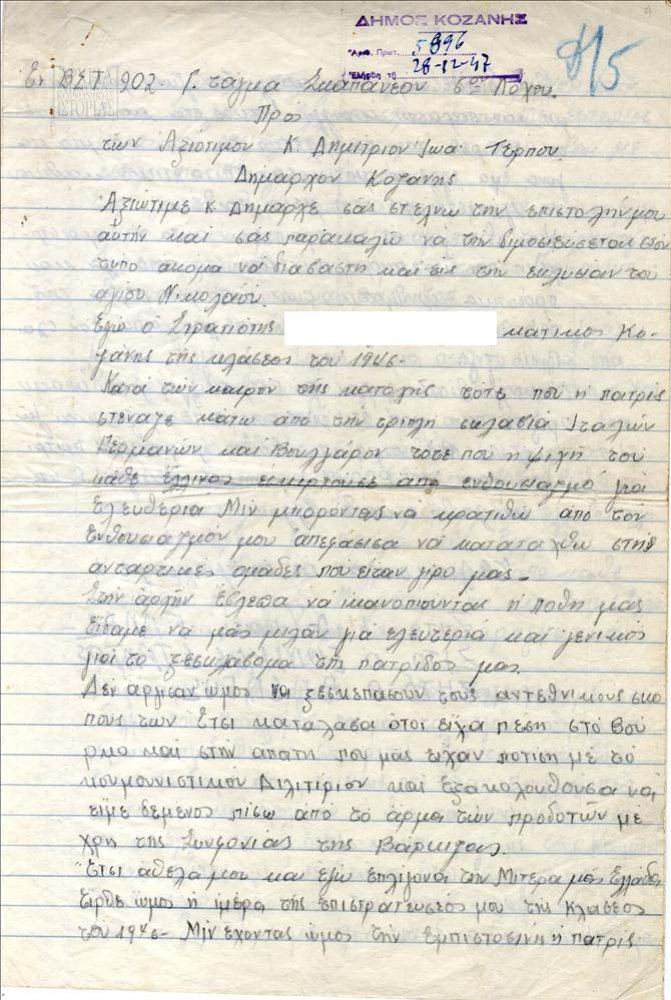 ΔΗΜΟΣ ΚΟΖΑΝΗΣ
Αριθ. Πρωτ. 5896
Ελήφθη τη 28-12-47
Β/5
ΙΣΤΟΡΙΑΣ
Εν ΒΣΤ 902 - Γ. ταγμα Σκαπανέον 6ου Λόχου.
Προς
τών Αξιότιμον Κ. Δημιτριον Ιωα. Τέρπου.
Δημαρχον Κοζάνης
Αξιώτιμε κ Δημαρχε σάς στέλνω την επιστολήν μου
αυτήν και σάς παρακαλώ να την διμοσιεύσεται στον
τυπο ακομα να διαβαστη και είς την εκλισίαν του
αγίου Νικολάου.
Εγώ ο Στρατιότης κατικος Κο-
ζάνης της κλάσεος του 1946-
Κατά τών καιρον της κατοχής τότε που η πατρίς
στεναζε κάτω από την τριπλή σκλαβιά Ιταλών
Γερμανών και Βουλγάρον τότε που η ψιχή του
κάθε έλλινος εσκιρτούσε απο ενθουσιασμό γιά
Ελευθερία Μίν μπορόντας να κρατιθώ από τον
Ενθουσιασμόν μου απεφάσισα νά καταταχθώ στης
ανταρτικες ομάδες που είταν γίρο μας.
Στήν αρχήν έβλεπα νά ικανοπιούνται η ποθη μας
είδαμε νά μας μιλάν γιά ελευτεριά και γενικός
γιά το ξεσκλάβομα της πατρίδος μας.
Δεν αργισαν ώμος να ξεσκεπασουν τους αντεθνικους σκο
πους των Ετσι καταλαβα ότοι είχα πεση στο Βού
ρκο και στήν απατη που μας είχαν ποτιση με το
κουμουνιστικόν Διλιτίριον και εξακολουθουσα να
είμε δεμενος πίσω από το άρμα τών προδοτών με
χρη της Συνφονίας της Βάρκιζας.
Έτσι αθελα μου και εγώ επλίγονα την Μιτερα μας Ελλάδα
Είρθε ώμος η ιμέρα της επιστρατευσεός μου της Κλασεος
του 1946- Μίν έχοντας ώμος την εμπιστοσινη η πατρις